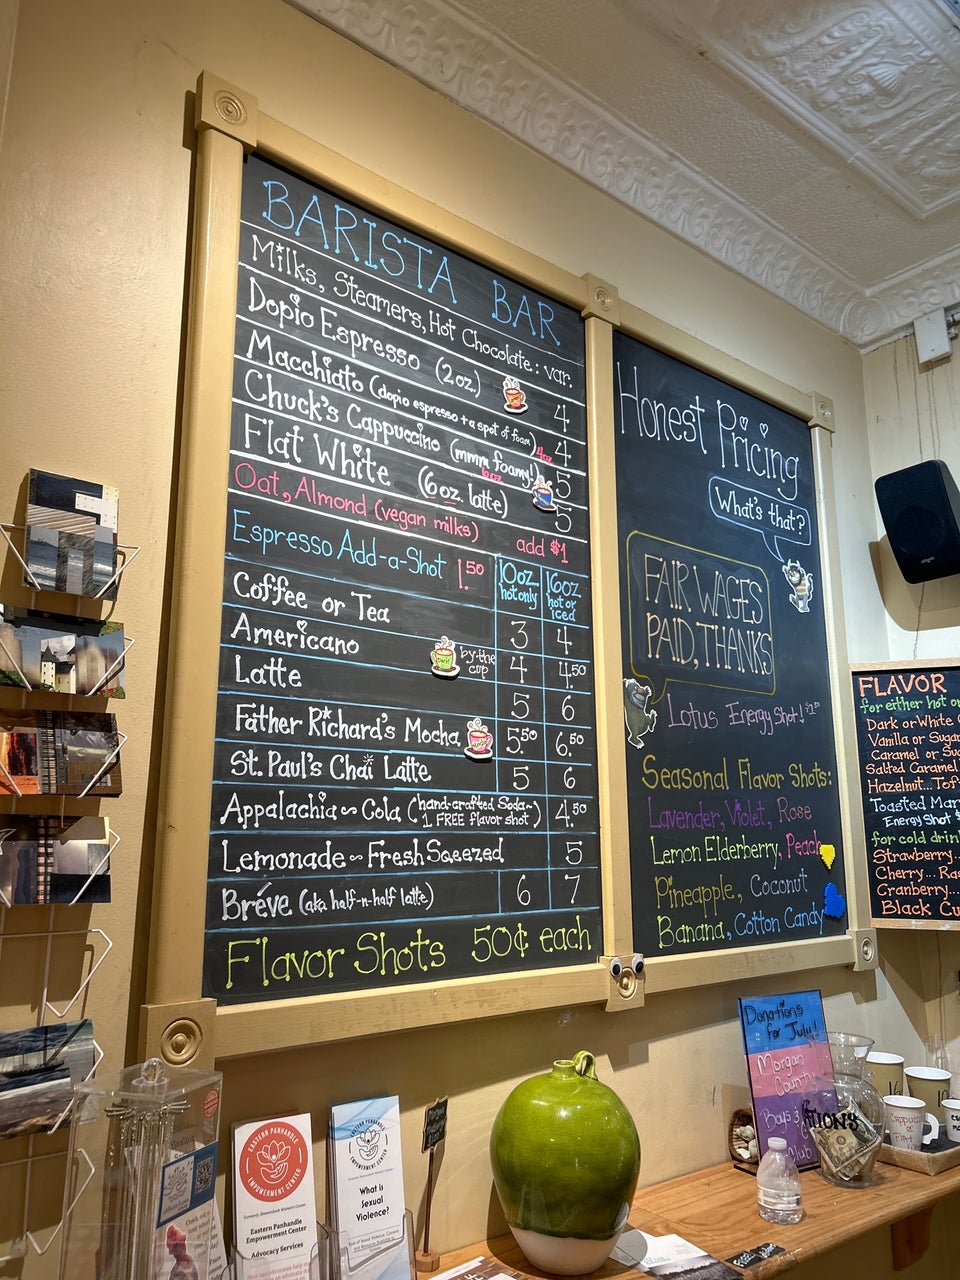 BARISTA BAR
Milks, Steamers, Hot Chocolate: var.
Dopio Espresso (2oz.) 4
Macchiato (dopio espresso + a spot of foam) 4oz 4
Chuck's Cappuccino (mmm foamy!) 5
Flat White (6oz. latte) 5
Oat, Almond (vegan milks) add $1
Espresso Add-a-Shot 1.50
10oz hot only
16oz hot or iced
Coffee or Tea 3 4
Americano by-the cup 4 4.50
Latte 5 6
Father Richard's Mocha 5.50 6.50
St. Paul's Chai Latte 5 6
Appalachia~Cola (hand-crafted Soda~ 1 FREE flavor shot) 4.50
Lemonade~Fresh Sqeezed 5
Bréve (aka half-n-half latte) 6 7
Flavor Shots 50¢ each
Honest Pricing
What's that?
FAIR WAGES
PAID, THANKS
Lotus Energy Shot!
Seasonal Flavor Shots:
Lavender, Violet, Rose
Lemon Elderberry, Peach
Pineapple, Coconut
Banana, Cotton Candy
FLAVOR
for either hot or
Dark or White
Vanilla or Sugar
Caramel or
Salted Caramel
Hazelnut...
Toasted
Energy Shot
for cold
Strawberry...
Cherry...
Cranberry...
Black
Donations
for July!
Morgan
County
Boys &
Club
EASTERN PANHANDLE
EMPOWERMENT CENTER
Eastern Panhandle
Empowerment Center
Advocacy Services
EMPOWERMENT CENTER
What is
Sexual
Violence?